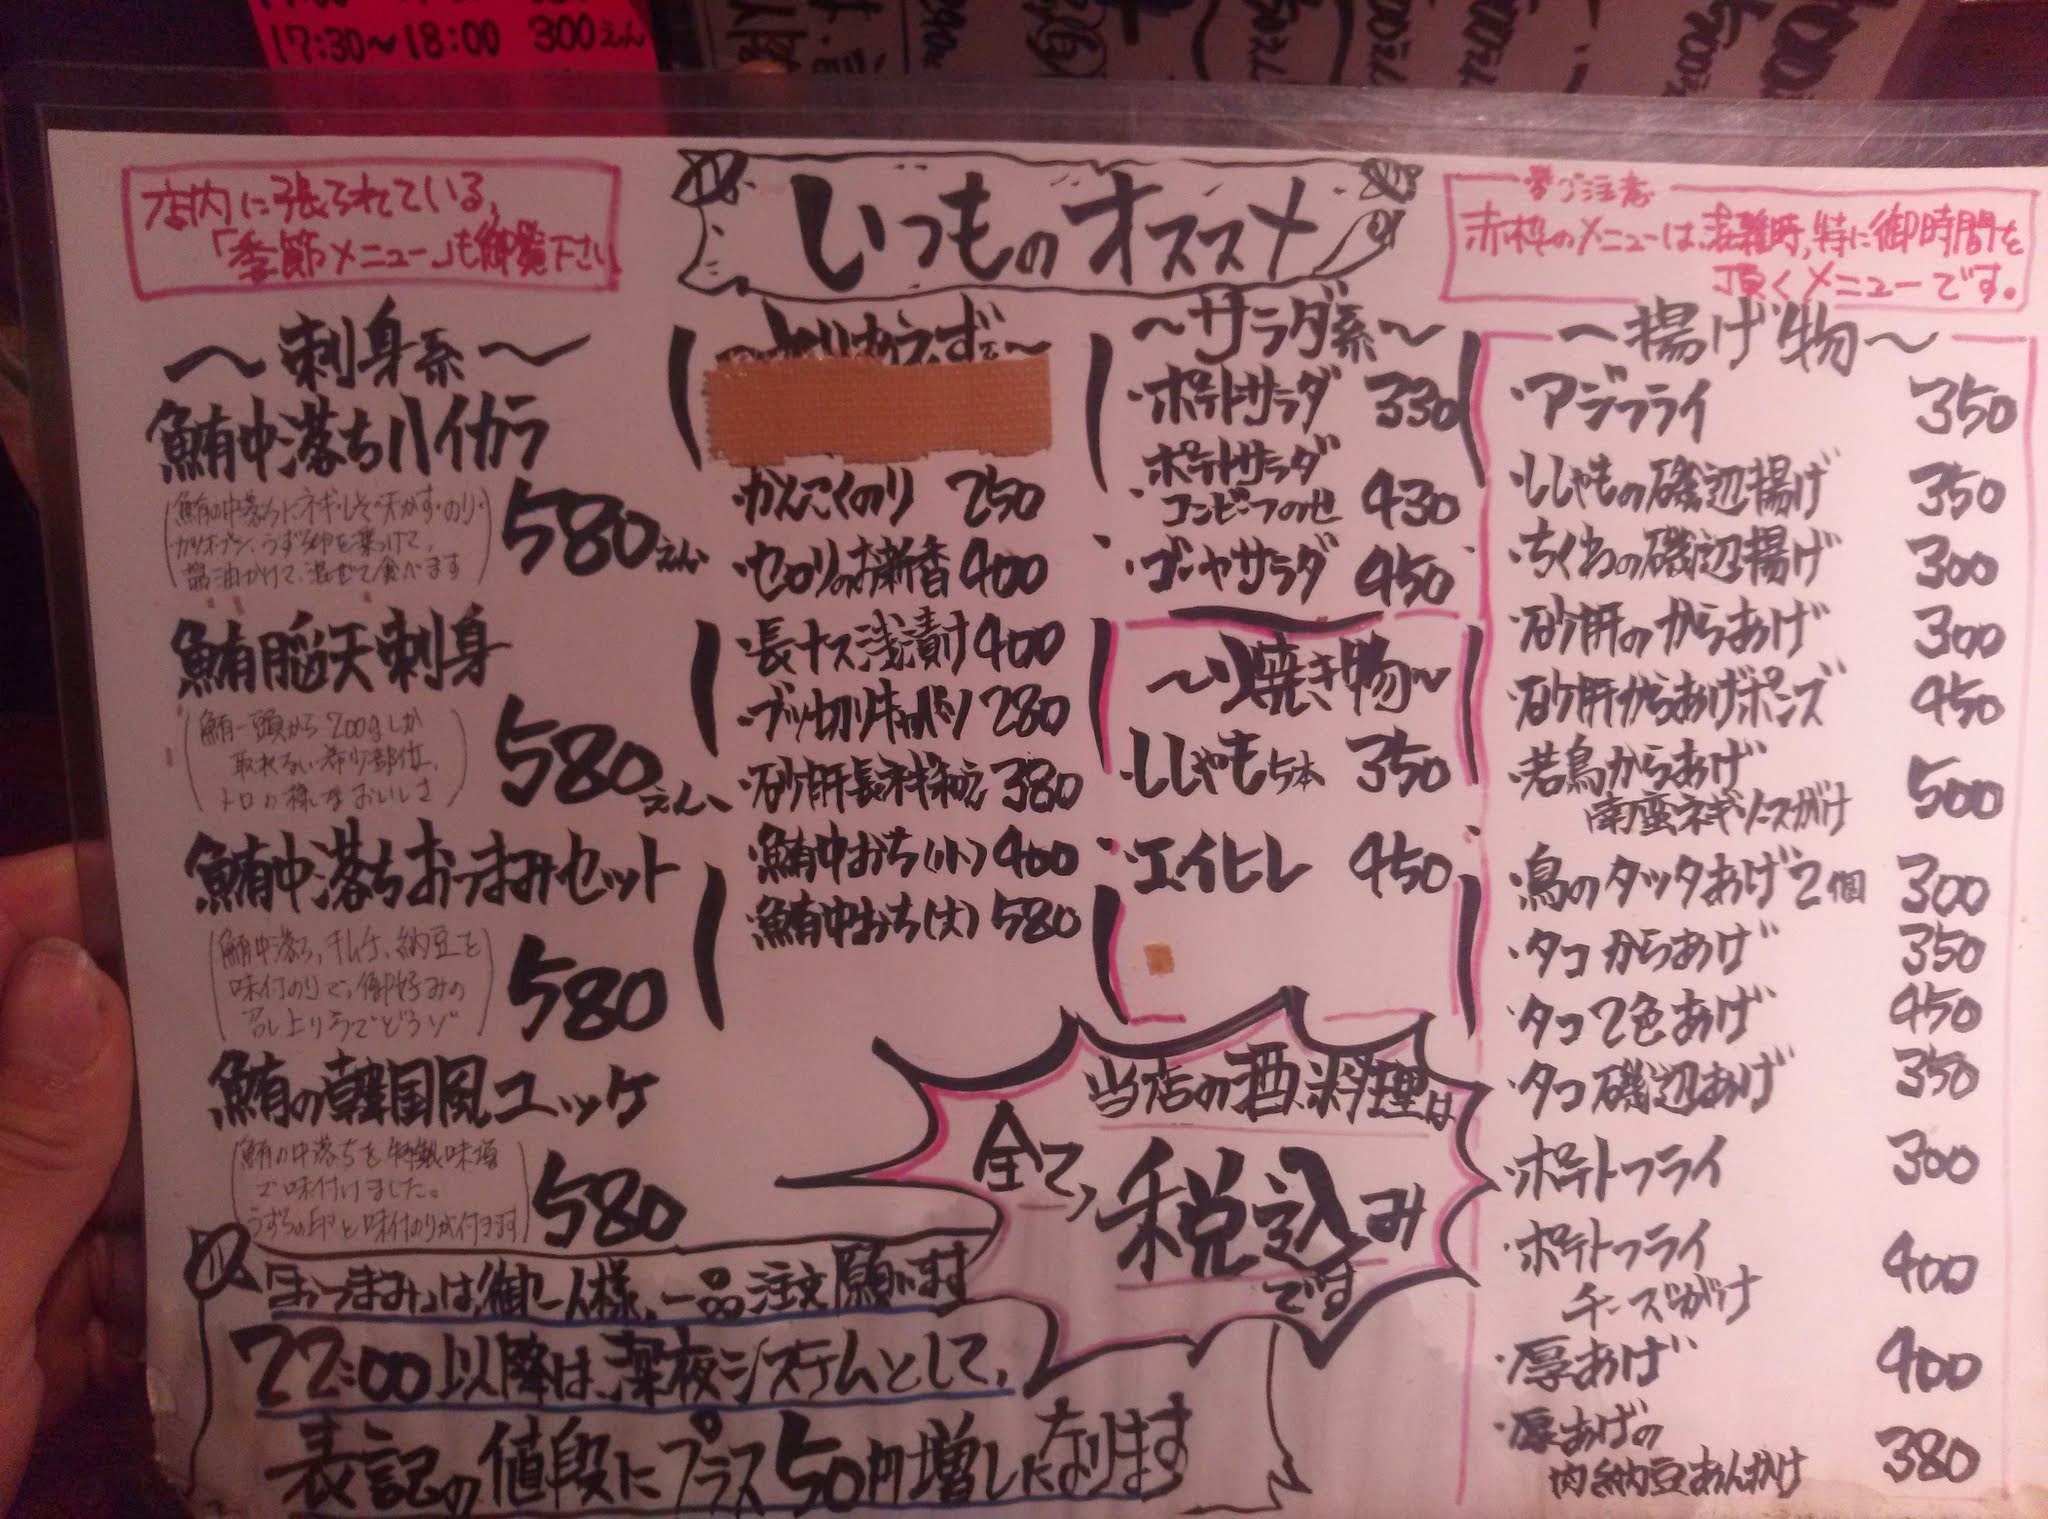 17:30~18:00 300えん
店内に張られている、
「季節メニュー」も御覧下さい
いつものオススメ
ご注意
赤枠のメニューは、混雑時、特に御時間を
頂くメニューです。
~刺身系~
鮪中落ちハイカラ
580えん
(鮪の中落ちにネギ・しそ・天かす・のり・
カツオブシ、うずら卵を乗っけて、
醤油かけて、混ぜて食べます)
鮪脳天刺身
580えん
(鮪一頭から200gしか
取れない希少部位、
トロの様なおいしさ)
鮪中落ちおつまみセット
580
(鮪中落ち、キムチ、納豆を
味付のりで、御好みの
召し上り方でどうぞ)
鮪の韓国風ユッケ
580
(鮪の中落ちを特製味噌
で味付けました。
うずらの卵と味付のりが付きます)
~とりあえずで~
・かんこくのり 250
・セロリのお新香 400
・長ナス浅漬け 400
・ブツ切りキャベツ 280
・砂肝長ネギ和え 380
・鮪中おち(小) 400
・鮪中おち(大) 580
~サラダ系~
・ポテトサラダ 330
・ポテトサラダ
コンビーフのせ 430
・ゴーヤサラダ 450
~焼き物~
・ししゃも5本 350
・エイヒレ 450
~揚げ物~
・アジフライ 350
・ししゃもの磯辺揚げ 350
・ちくわの磯辺揚げ 300
・砂肝のからあげ 300
・砂肝からあげポンズ 450
・若鳥からあげ
南蛮ネギソースがけ 500
・鳥のタッタあげ2個 300
・タコからあげ 350
・タコ2色あげ 450
・タコ磯辺あげ 350
・ポテトフライ 300
・ポテトフライ
チーズがけ 400
・厚あげ 400
・厚あげの
肉納豆あんかけ 380
当店の酒、料理は
全て、税込み
です
「おつまみ」は、御一人様、一品注文願います
22:00以降は、深夜システムとして、
表記の値段にプラス50円増しになります